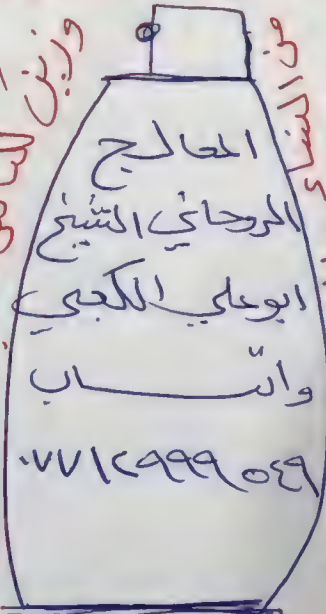 وزين
من النساء
المعالج
الروحاني الشيخ
ابو علي الكعبي
واتساب
٠٧٧١٢٩٩٩٥٤٩